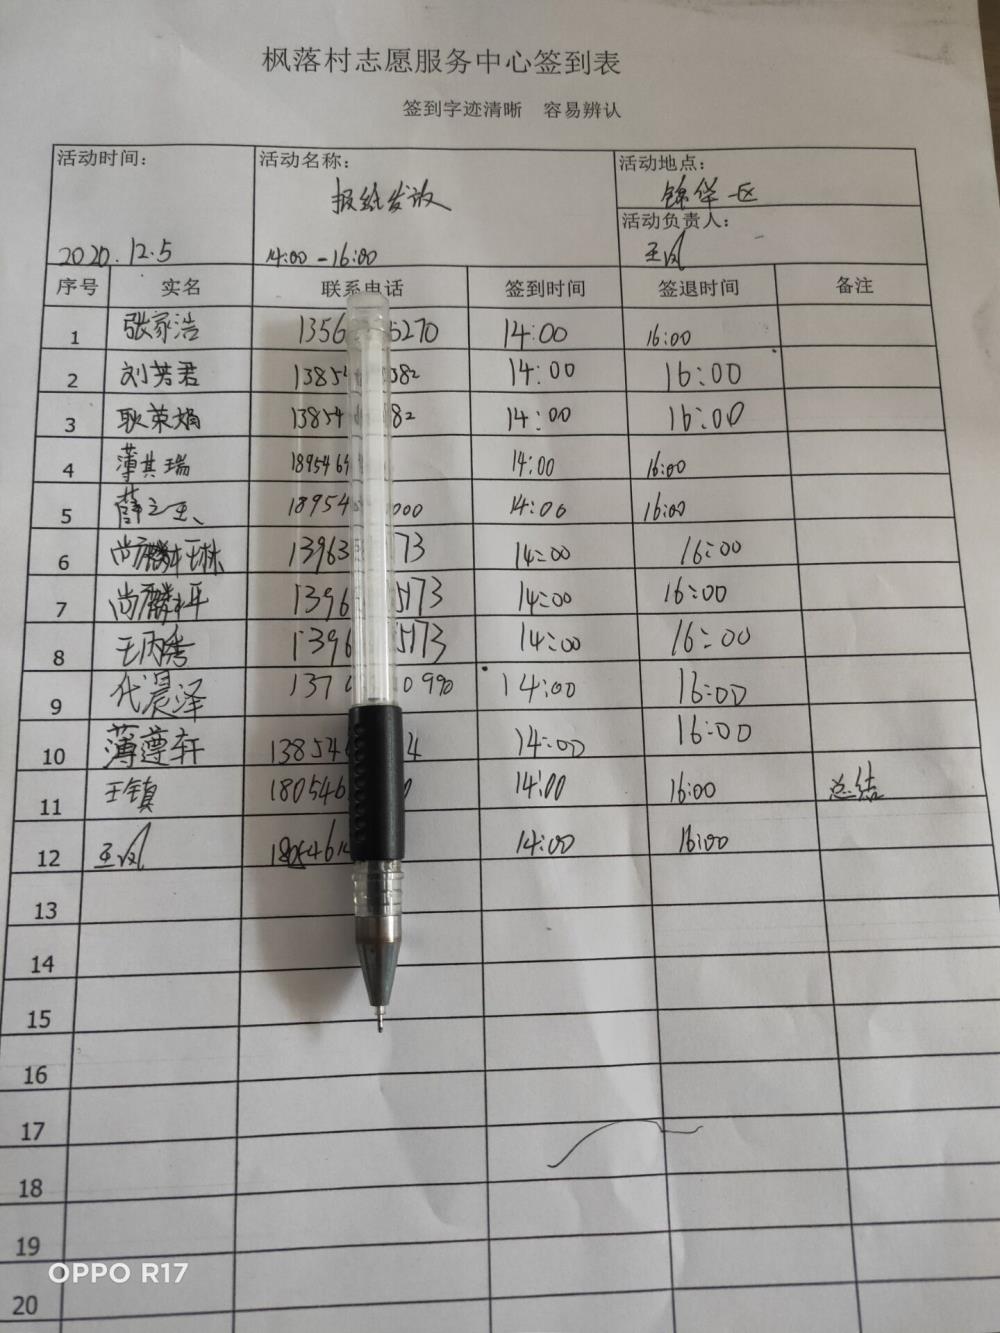 枫落村志愿服务中心签到表
签到字迹清晰 容易辨认
活动时间： 活动名称： 活动地点：
报纸发放 锦华一区
活动负责人：
2020.12.5 14:00-16:00 王凤
序号 实名 联系电话 签到时间 签退时间 备注
1 张家浩 1356 5270 14:00 16:00
2 刘芳君 1385 382 14:00 16:00
3 耿荣娟 13854 82 14:00 16:00
4 薄其瑞 1895464 14:00 16:00
5 薛之玉 18954 000 14:00 16:00
6 尚麒琳 13963 73 14:00 16:00
7 尚麟祥 1396 5173 14:00 16:00
8 王丙秀 1396 5173 14:00 16:00
9 代晨泽 137 0990 14:00 16:00
10 薄蕴轩 13854 4 14:00 16:00
11 王镇 180546 0 14:00 16:00 总结
12 王凤 18054614 14:00 16:00
13
14
15
16
17
18
19
20
OPPO R17